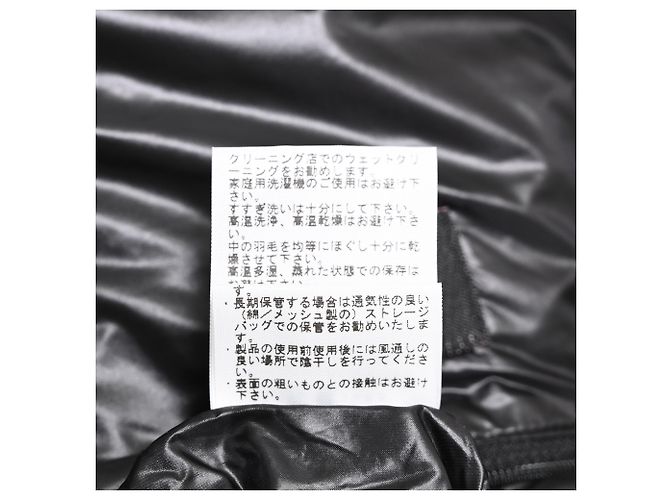 クリーニング店でのウェットクリ
ーニングをお勧めします。
家庭用洗濯機のご使用はお避け下
さい。
すすぎ洗いは十分にして下さい。
高温洗浄、高温乾燥はお避け下さ
い。
中の羽毛を均等にほぐし十分に乾
燥させて下さい。
高温多湿、蒸れた状態での保存は
お避け下さい
す。
・長期保管する場合は通気性の良い
（綿／メッシュ製の）ストレージ
バッグでの保管をお勧めいたしま
す。
・製品の使用前使用後には風通しの
良い場所で陰干しを行ってくださ
い。
・表面の粗いものとの接触はお避け
下さい。